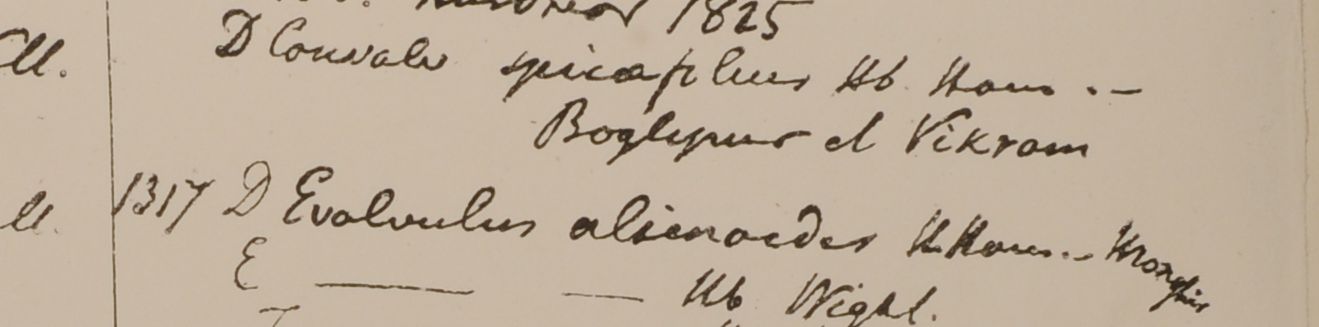 1825
D Convolv spicaefolius Hb Ham. —
Boglipur et Vikram
1317 D Evolvulus alsinoides H. Ham. — Mongfir
E —— — Hb Wight.